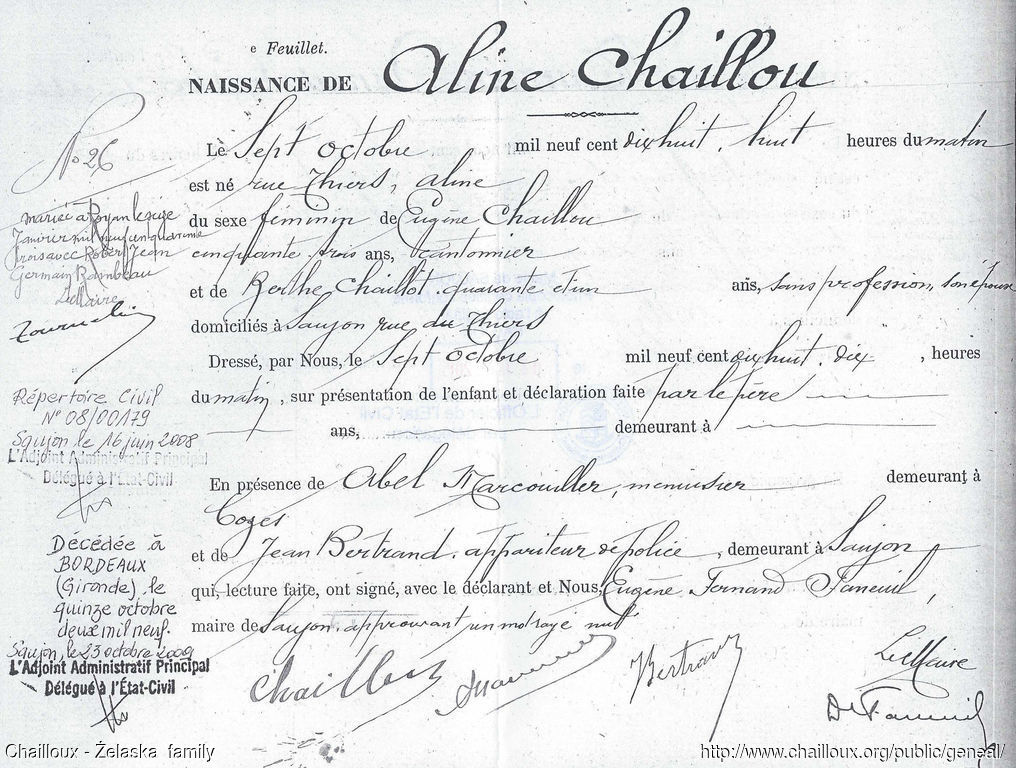 e Feuillet.
NAISSANCE DE Aline Chaillou
N° 26
Le Sept octobre mil neuf cent dix huit, huit heures du matin
est né rue Thiers, Aline
du sexe féminin de Eugène Chaillou
cinquante trois ans, cantonnier
et de Berthe Chaillot quarante et un ans, sans profession, son épouse
domiciliés à Saujon rue du Thiers
Dressé, par Nous, le Sept octobre mil neuf cent dix huit, dix, heures
du matin, sur présentation de l'enfant et déclaration faite par le père
ans, demeurant à
En présence de Abel Marcouiller, menuisier demeurant à
Cozes
et de Jean Bertrand, appariteur de police, demeurant à Saujon
qui, lecture faite, ont signé, avec le déclarant et Nous, Eugène Fernand
maire de Saujon approuvant un mot rayé nul
Chaillou
Bertrand
Le Maire
mariée à Royan le onze
Janvier mil neuf cent quarante
trois avec Robert Jean
Germain Rambeau
Le Maire
Répertoire Civil
N° 08/00179
Saujon le 16 juin 2008
L'Adjoint Administratif Principal
Délégué à l'État-Civil
Décédée à
BORDEAUX
(Gironde), le
quinze octobre
deux mil neuf.
Saujon, le 23 octobre 2009
L'Adjoint Administratif Principal
Délégué à l'État-Civil
Chailloux - Želaska family
http://www.chailloux.org/public/geneal/